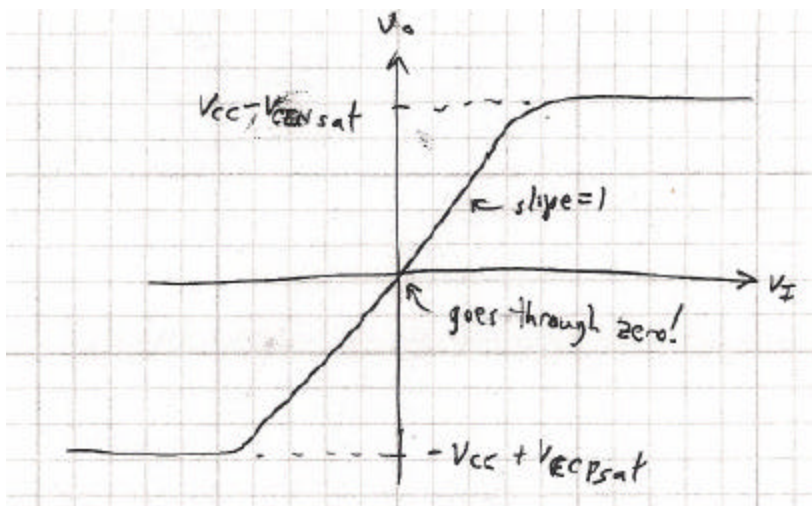 Vo
VCC - VCEN sat
slope=1
VI
goes through zero!
- VCC + VECPsat